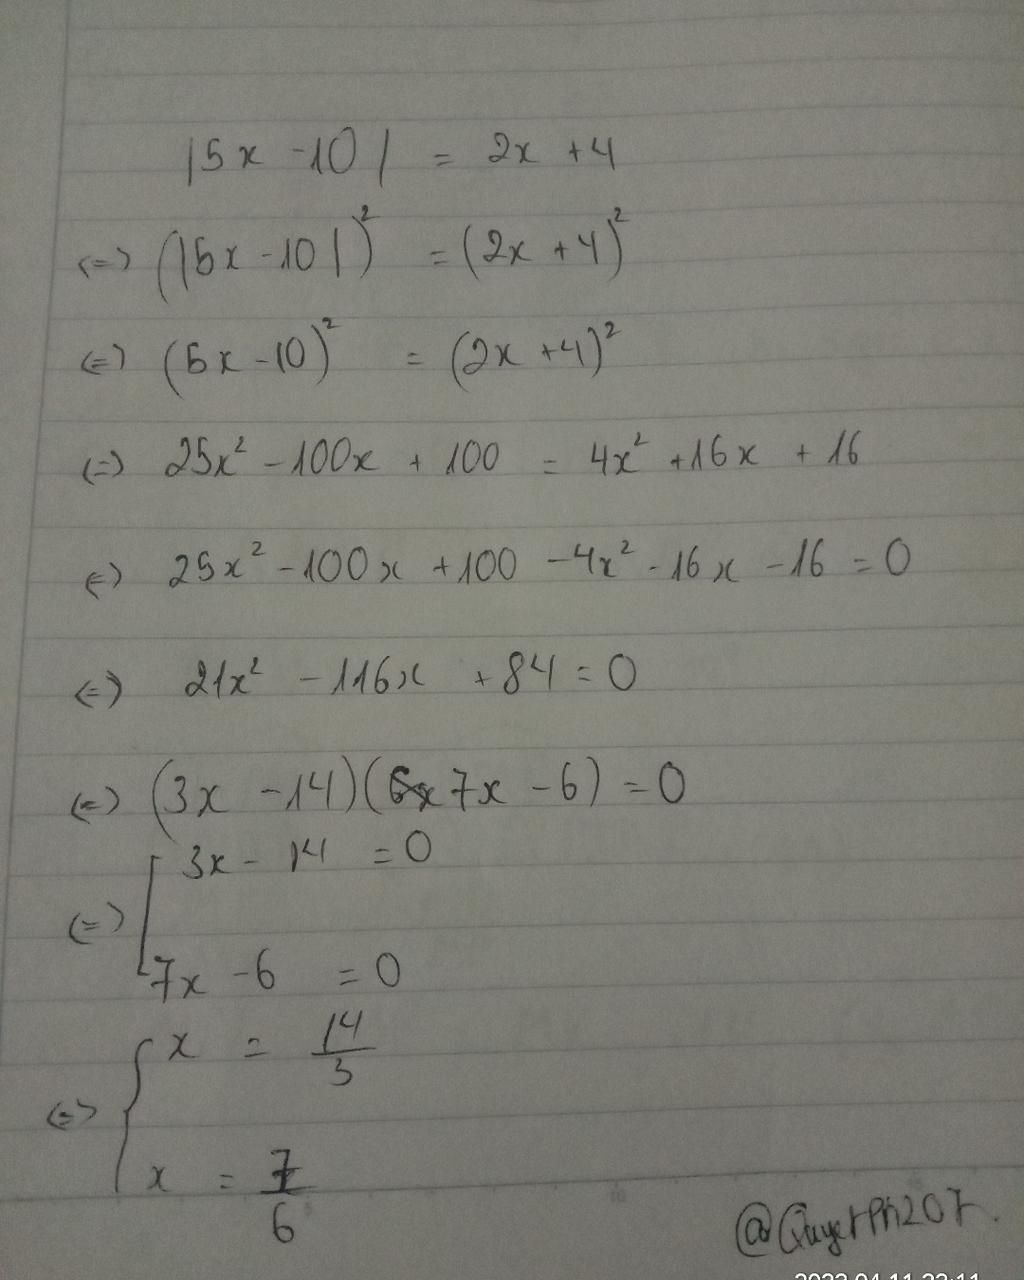 |5x - 10| = 2x + 4
<=> (|5x - 10|)² = (2x + 4)²
<=> (5x - 10)² = (2x + 4)²
<=> 25x² - 100x + 100 = 4x² + 16x + 16
<=> 25x² - 100x + 100 - 4x² - 16x - 16 = 0
<=> 21x² - 116x + 84 = 0
<=> (3x - 14)(7x - 6) = 0
<=> [ 3x - 14 = 0
7x - 6 = 0
<=> { x = 14/3
x = 7/6
@QuyetPh207.